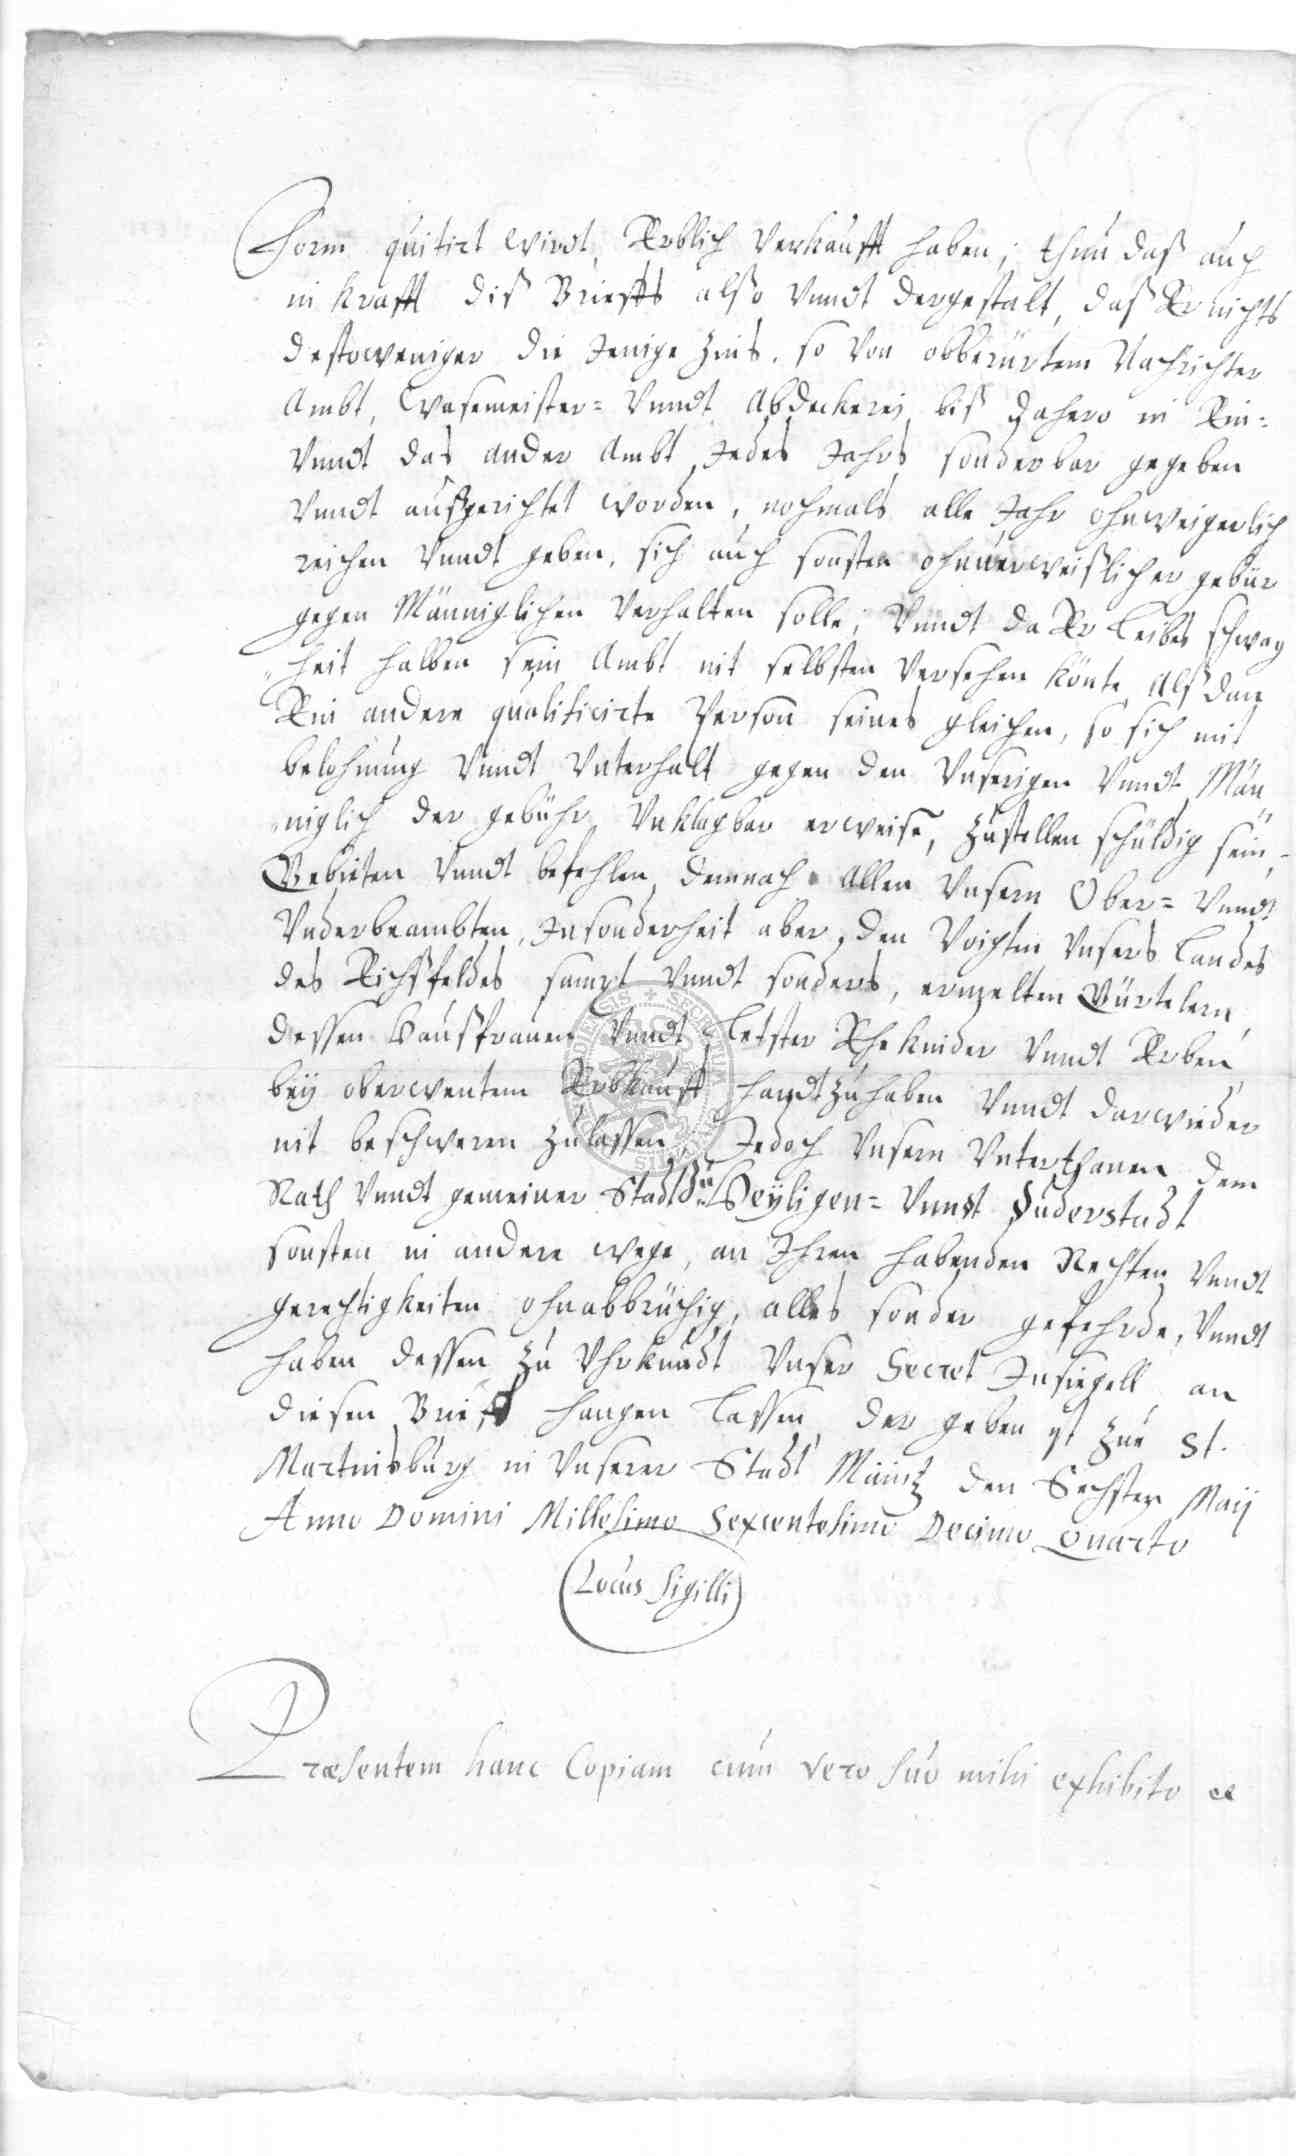 Form quitirt wirdt, Erblich verkaufft haben; thun daß auch
in krafft diß Brieffs also vnndt dergestalt, daß Er nichts
destoweniger die Jenige Zins, so von obberürtem Nachrichter
Ambt, Wasemeister= vnndt Abdeckerei biß dahero in Ein=
vnndt das ander Ambt Jedes Jahrs sonderbar gegeben
vnndt außgerichtet worden, nochmals alle Jahr ohnweigerlich
reichen vnndt geben, sich auch sonsten ohnuerweißlicher gebür
gegen Männiglichen verhalten solle; Vnndt da Er Leibs schwag
„heit halben sein Ambt nit selbsten versehen könte Alßdan
Ein andere qualificirte Person seines gleichen, so sich mit
belohnung vnndt Vnterhalt gegen den Vnserigen vnndt Män
„niglich der gebühr Vnklagbar erweise, Zustellen schuldig sein,
Gebieten vnndt befehlen demnach allen Vnsern Ober= vnndt
Vnderbeambten, Insonderheit aber den Voigten Vnsers Landes
des Eichßfeldes sampt vnndt sonders, ermelten Gürtelern
dessen Haußfrauen vnndt Letster Ehe kinder vnndt Erben
bey oberwentem Erbkauff handtzuhaben vnndt darwieder
nit beschweren Zulassen, Jedoch Vnsern Vnterthanen dem
Rath vnndt gemeiner Stadt Zu Heyligen= vnndt Duderstadt
sonsten in andere wege, an Ihren habenden Rechten vnndt
gerechtigkeiten ohnabbrüchig, alles sonder gefehrde, Vnndt
haben dessen Zu Vhrkundt Vnser Secret Insiegell an
diesen Brieff hangen lassen der geben ist Zue St.
Martinsburg in Vnserer Stadt Maintz den Sechsten Maij
Anno Domini Millesimo Sexcentesimo Decimo Quarto
Locus Sigilli
Præsentem hanc Copiam cum vero suo mihi exhibito et